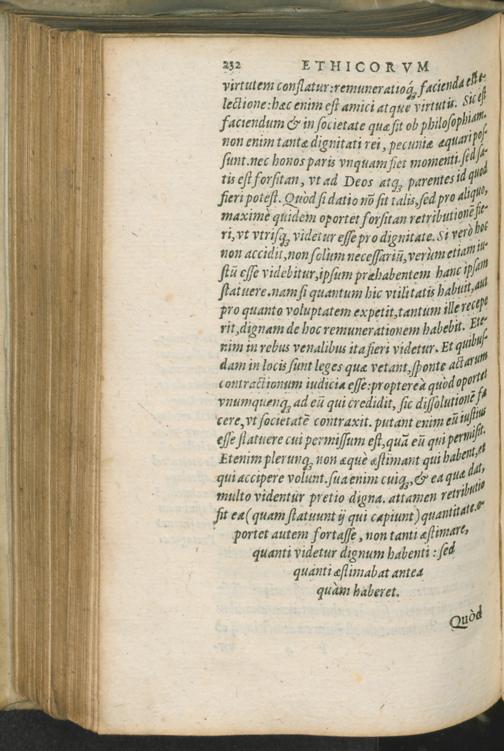 232 ETHICORVM
virtutem conflatur: remuneratioq́; facienda est e-
lectione: hæc enim est amici atque virtutis. Sic est
faciendum & in societate quæ sit ob philosophiam.
non enim tantæ dignitati rei, pecuniæ æquari pos-
sunt. nec honos paris vnquam fiet momenti. sed sa-
tis est forsitan, vt ad Deos atq; parentes id quod
fieri potest. Quòd si datio nõ sit talis, sed pro aliquo,
maximè quidem oportet forsitan retributionẽ fie-
ri, vt vtrisq; videtur esse pro dignitate. Si verò hoc
non accidit, non solum necessariũ, verùm etiam iu-
stũ esse videbitur, ipsum præhabentem hanc ipsam
statuere. nam si quantum hic vtilitatis habuit, aut
pro quanto voluptatem expetit, tantum ille recepe
rit, dignam de hoc remunerationem habebit. Ete-
nim in rebus venalibus ita fieri videtur. Et quibus-
dam in locis sunt leges quæ vetant, sponte actarum
contractionum iudicia esse: propterea quòd oportet
vnumquenq; ad eũ qui credidit, sic dissolutionẽ fa
cere, vt societatẽ contraxit. putant enim eũ iustius
esse statuere cui permissum est, quã eũ qui permisit.
Etenim plerunq; non æque æstimant qui habent, et
qui accipere volunt. sua enim cuiq;, & ea quæ dat,
multo videntur pretio digna. attamen retributio
fit ea (quam statuunt ij qui capiunt) quantitate. o-
portet autem fortasse, non tanti æstimare,
quanti videtur dignum habenti: sed
quanti æstimabat antea
quàm haberet.
Quòd